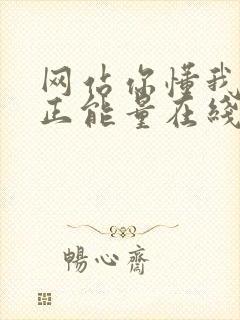 网估你懂我
正能量在线
暢心齋